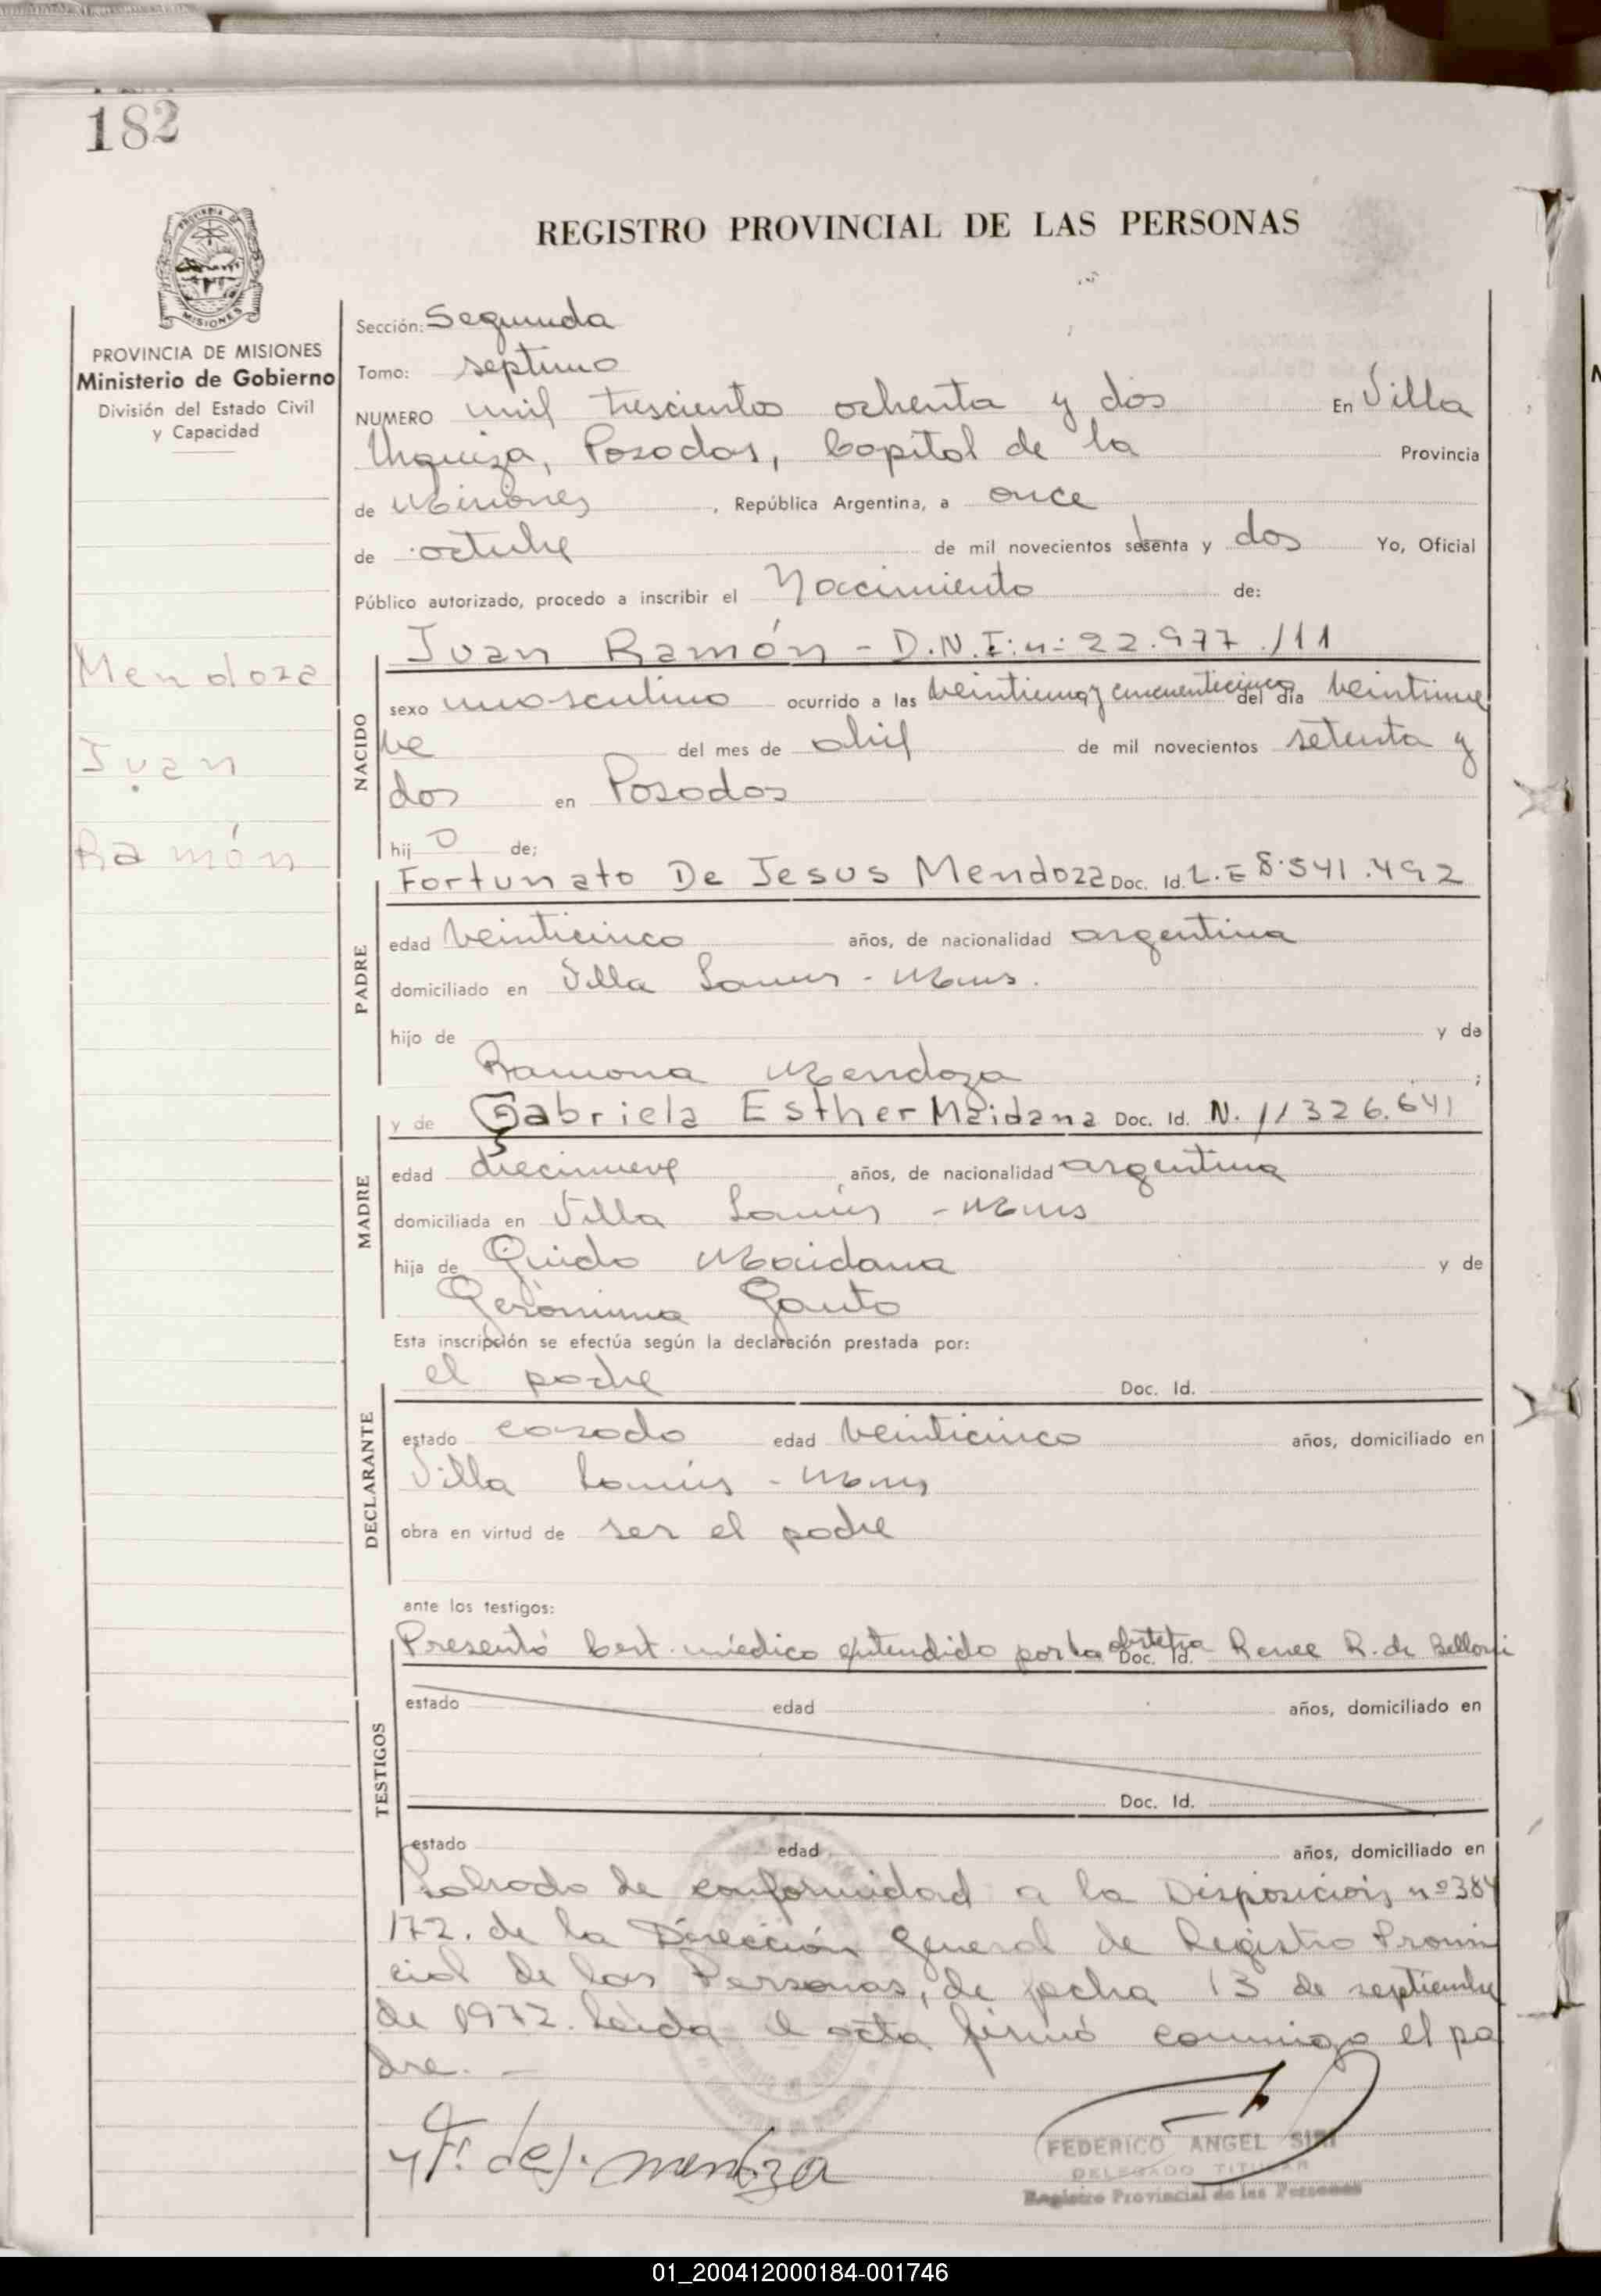 182
REGISTRO PROVINCIAL DE LAS PERSONAS
MISIONES
PROVINCIA DE MISIONES
Ministerio de Gobierno
División del Estado Civil
y Capacidad
Mendoza
Juan
Ramón
Sección: Segunda
Tomo: septimo
NUMERO mil trescientos ochenta y dos En Villa
Urquiza, Posadas, Capital de la Provincia
de Misiones, República Argentina, a once
de octubre de mil novecientos setenta y dos Yo, Oficial
Público autorizado, procedo a inscribir el Nacimiento de:
NACIDO
Juan Ramón - D.N.I: n: 22.977.111
sexo masculino ocurrido a las veintiuna y cincuenticinco del día veintinue
ve del mes de abril de mil novecientos setenta y
dos en Posadas
hij o de;
PADRE
Fortunato De Jesus Mendoza Doc. Id. L.E 8.541.492
edad veinticinco años, de nacionalidad argentina
domiciliado en Villa Lanus - Mnes.
hijo de y de
Ramona Mendoza ;
MADRE
y de Gabriela Esther Maidana Doc. Id. N. 11326.641
edad diecinueve años, de nacionalidad argentina
domiciliada en Villa Lanús - Mnes
hija de Guido Maidana y de
Gerónima Gauto
Esta inscripción se efectúa según la declaración prestada por:
DECLARANTE
el padre Doc. Id.
estado casado edad veinticinco años, domiciliado en
Villa Lanús - Mnes
obra en virtud de ser el padre
ante los testigos:
TESTIGOS
Presentó Cert. médico extendido por la obstetra Doc. Id. Renee R. de Belloni
estado edad años, domiciliado en
Doc. Id.
estado edad años, domiciliado en
Labrada de conformidad a la Disposición nº 384
172. de la Dirección General de Registro Provin
cial de las Personas, de fecha 13 de septiembre
de 1972. Leída el acta firmó conmigo el pa
dre. -
F. de J. Mendoza
FEDERICO ANGEL SIRI
DELEGADO TITULAR
Registro Provincial de las Personas
01_200412000184-001746